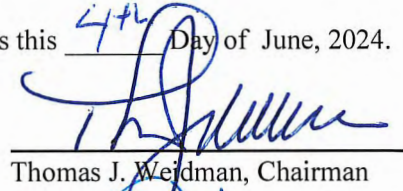 s this 4th Day of June, 2024.
Thomas J. Weidman, Chairman